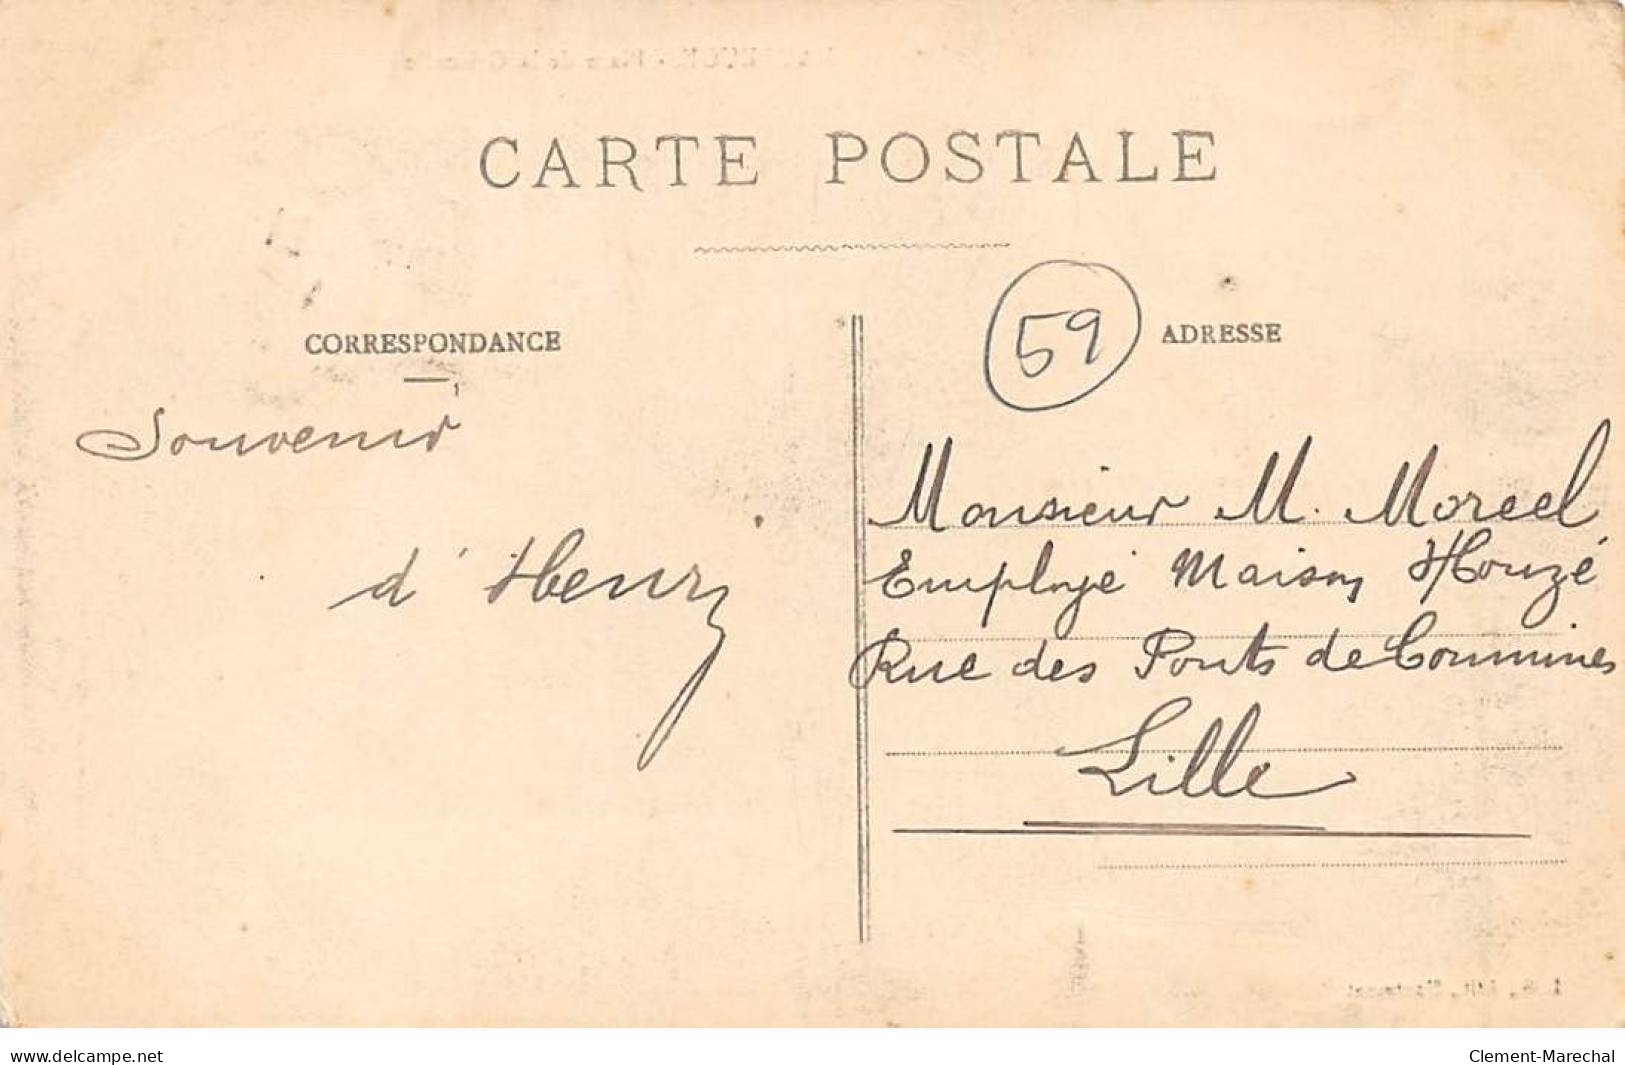 CARTE POSTALE
CORRESPONDANCE
59
ADRESSE
Souvenir
d'Henry
Monsieur M. Moreel
Employé Maison Houzé
Rue des Ponts de Commines
Lille
www.delcampe.net
Clement-Marechal